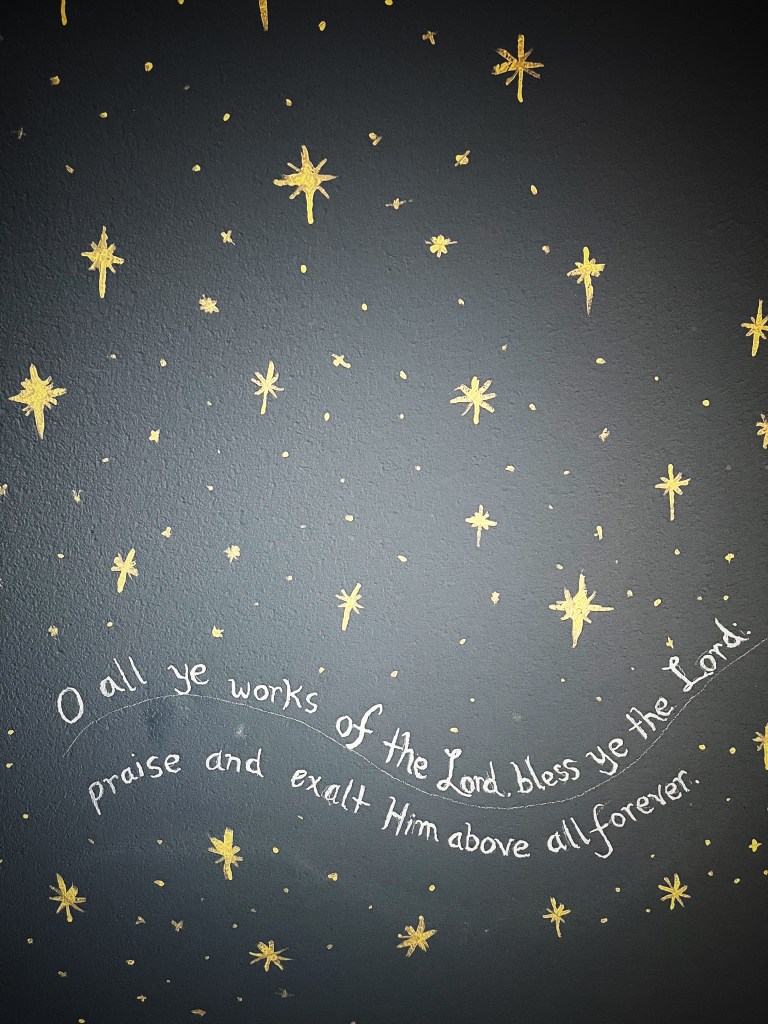 O all ye works of the Lord, bless ye the Lord:
praise and exalt Him above all forever.